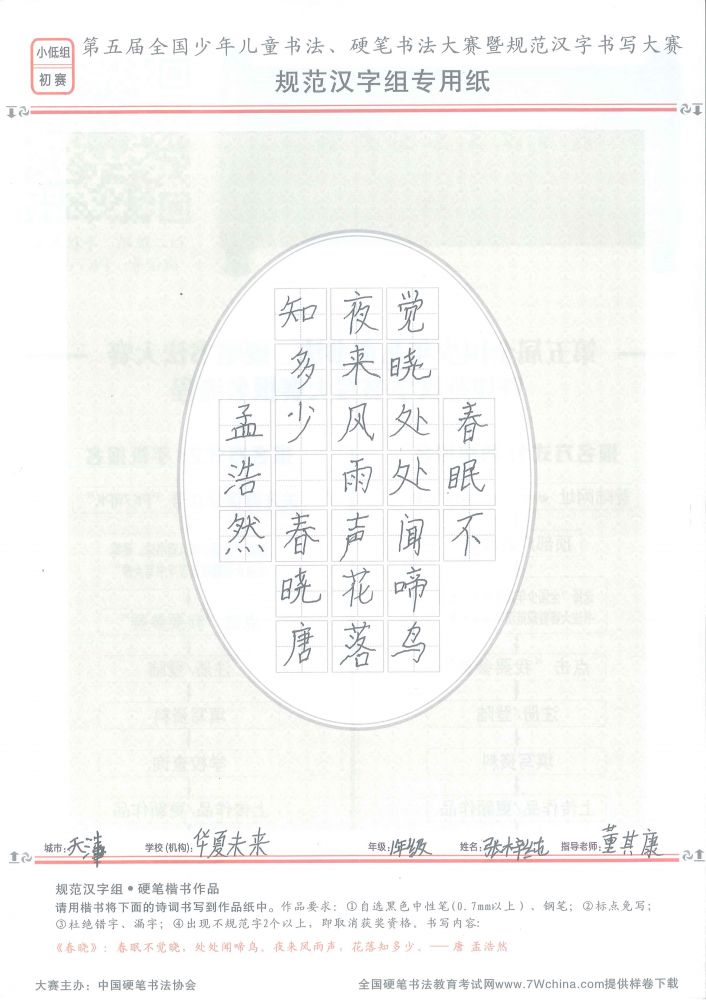 小低组
初赛
第五届全国少年儿童书法、硬笔书法大赛暨规范汉字书写大赛
规范汉字组专用纸
春眠不
觉晓处处闻啼鸟
夜来风雨声花落
知多少 春晓唐
孟浩然
城市：天津 学校(机构)：华夏未来 年级：1年级 姓名：张 指导老师：董其康
规范汉字组•硬笔楷书作品
请用楷书将下面的诗词书写到作品纸中。作品要求：①自选黑色中性笔(0.7mm以上)、钢笔；②标点免写；
③杜绝错字、漏字；④出现不规范字2个以上，即取消获奖资格。书写内容：
《春晓》：春眠不觉晓，处处闻啼鸟。夜来风雨声，花落知多少。——唐 孟浩然
大赛主办：中国硬笔书法协会 全国硬笔书法教育考试网www.7Wchina.com提供样卷下载